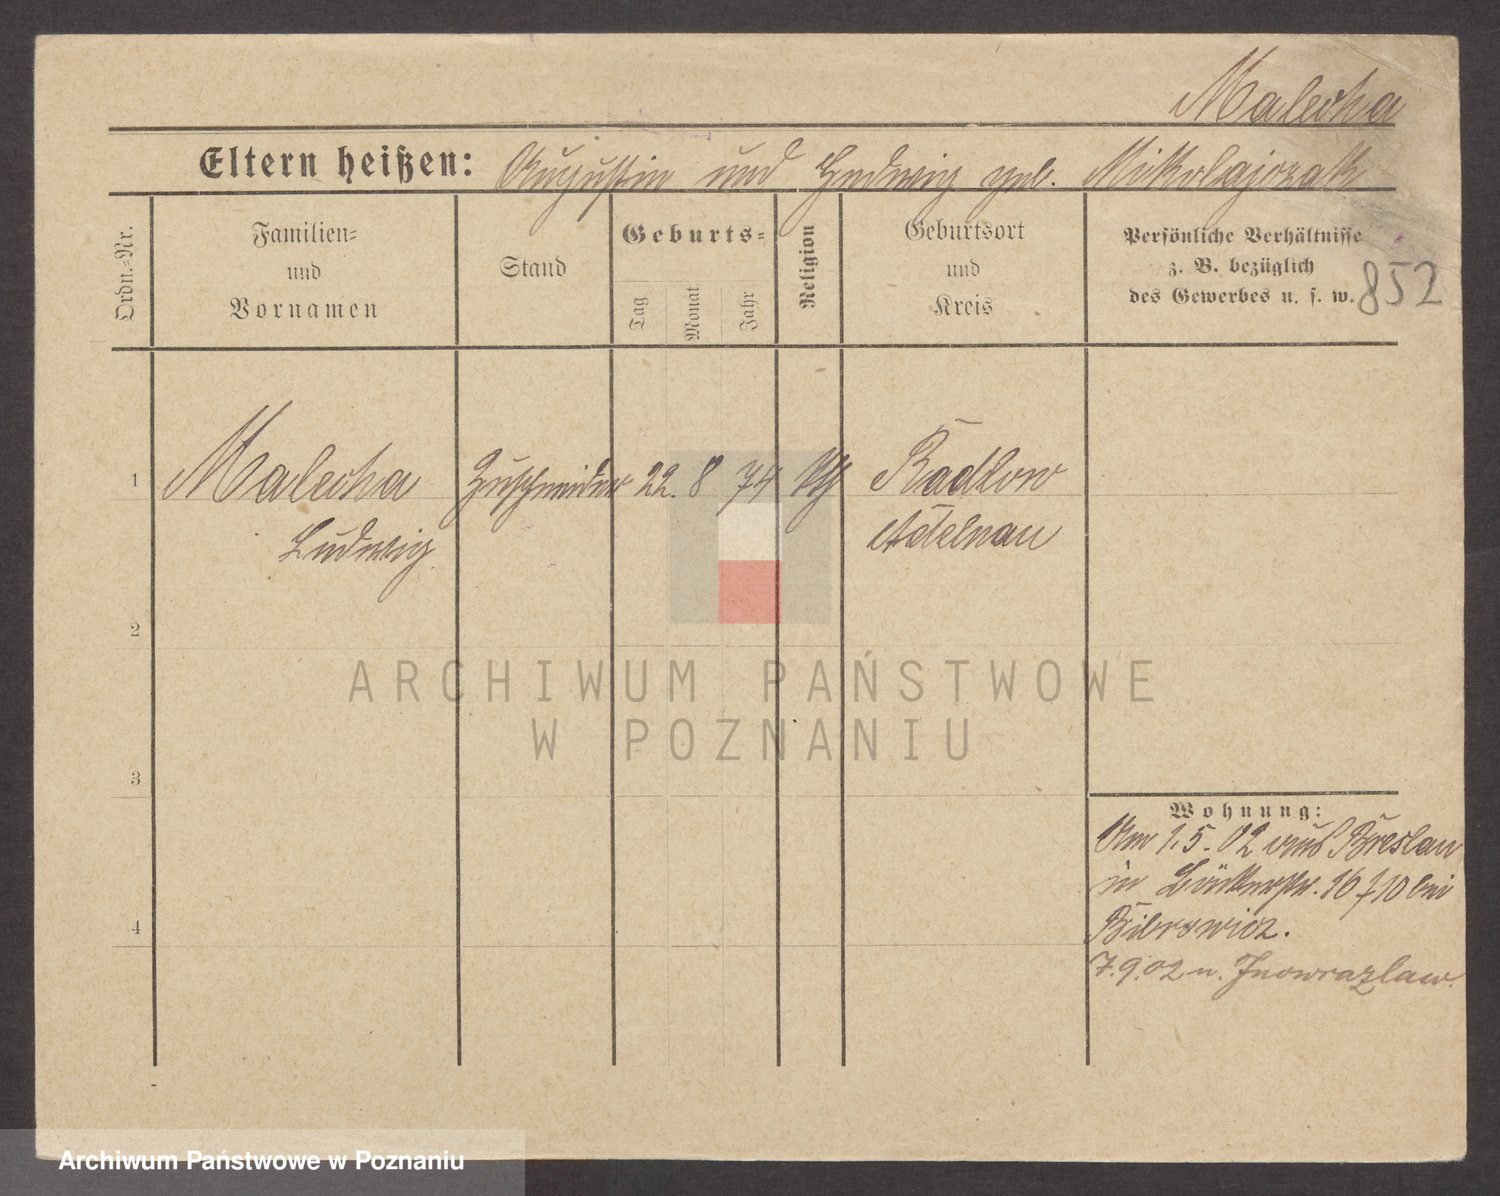 Malecha
Eltern heißen: Augustin und Hedwig geb. Mikolajczak
Ordn.-Nr.
Familien-
und
Vornamen
Stand
Geburts-
Tag
Monat
Jahr
Religion
Geburtsort
und
Kreis
Persönliche Verhältnisse
z. B. bezüglich
des Gewerbes u. s. w.
852
1 Malecha Zuschneider 22. 8 74 kth Radlow
Ludwig Adelnau
2
3
4
Wohnung:
Am 1.5.02 aus Breslau
in Bäckerstr. 16 bei
Bibrowicz.
7.9.02 n. Inowrazlaw.
ARCHIWUM PAŃSTWOWE
W POZNANIU
Archiwum Państwowe w Poznaniu